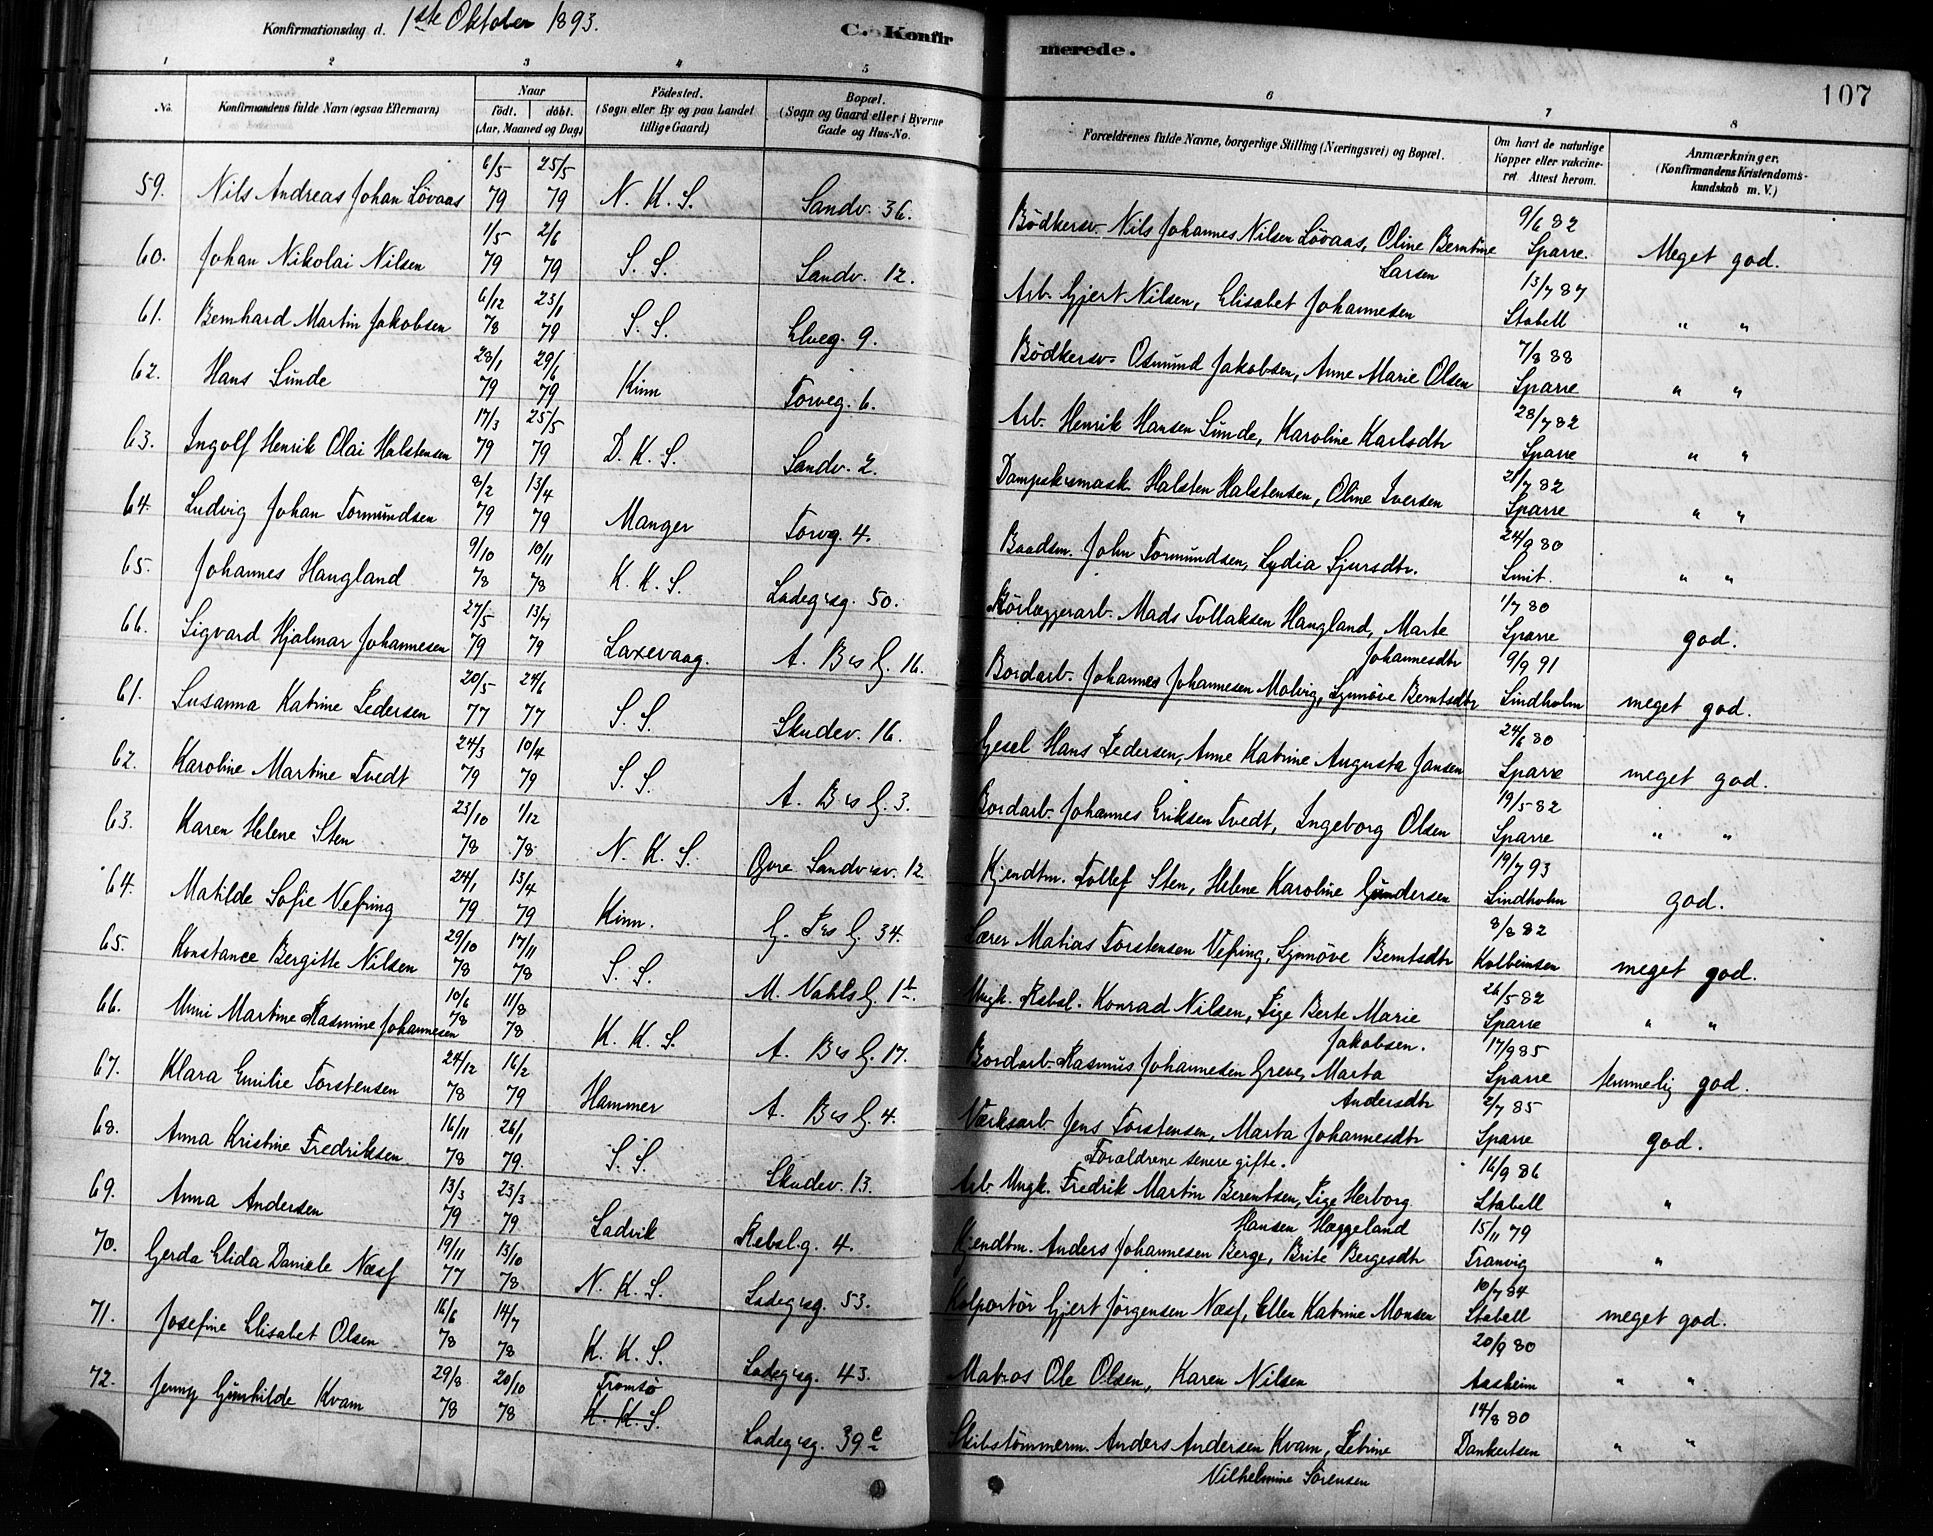 Konfirmationsdag d. 1ste Oktober 1893. C. Konfirmerede. 107
1 2 3 4 5 6 7 8
No. Konfirmandens fulde Navn (ogsaa Efternavn) Naar födt. döbt. (Aar, Maaned og Dag) Födested. (Sogn eller By og paa Landet tillige Gaard) Bopæl. (Sogn og Gaard eller i Byerne Gade og Hus-No. Forældrenes fulde Navne, borgerlige Stilling (Næringsvei) og Bopæl. Om havt de naturlige Kopper eller vakcineret. Attest herom. Anmærkninger. (Konfirmandens Kristendomskundskab m. V.)
59. Nils Andreas Johan Lövaas 6/5 79 25/5 79 N. K. S. Sandv. 36. Bödkersv. Nils Johannes Nilsen Lövaas, Oline Berntine Larsen 9/6 82 Sparre. Meget god.
60. Johan Nikolai Nilsen 1/5 79 2/6 79 S. S. Sandv. 12. Arb. Gjert Nilsen, Elisabet Johannesen 13/7 87 Stabell " "
61. Bernhard Martin Jakobsen 6/12 78 23/1 79 S. S. Elveg. 9. Bödkersv. Osmund Jakobsen, Anne Marie Olsen 7/8 88 Sparre " "
62. Hans Sunde 28/1 79 29/6 79 Kinn Torveg. 6. Arb. Henrik Hansen Sunde, Karoline Karlsdtr 28/7 82 Sparre " "
63. Ingolf Henrik Olai Halstensen 17/3 79 25/5 79 D. K. S. Sandv. 2. Dampsksmask. Halsten Halstensen, Oline Iversen 21/7 82 Sparre " "
64. Ludvig Johan Tormundsen 8/2 79 13/4 79 Manger Torvg. 4. Baadsm. John Tormundsen, Lydia Sjursdtr. 24/9 80 Smit. " "
65. Johannes Haugland 9/10 78 10/11 78 K. K. S. Ladegsg. 50. Rörlæggerarb. Mads Tollaksen Haugland, Marte Johannesdtr 1/7 80 Sparre god.
66. Sigvard Hjalmar Johannesen 27/5 79 13/7 79 Laxevaag. A. Bs G. 16. Bordarb. Johannes Johannesen Molvig, Synnöve Berntsdtr 9/9 91 Lindholm meget god.
61. Susanna Katrine Pedersen 20/5 77 24/6 77 S. S. Skudev. 16. Gesel Hans Pedersen, Anne Katrine Augusta Jansen 24/6 80 Sparre meget god.
62. Karoline Martine Tvedt 24/3 79 10/4 79 S. S. A. Bs G. 3. Bordarb. Johannes Eriksen Tvedt, Ingeborg Olsen 19/5 82 Sparre " "
63. Karen Helene Sten 23/10 78 1/12 78 N. K. S. Øvre Sandvsv. 12. Kjendtm. Tollef Sten, Helene Karoline Gundersen 19/7 93 Lindholm god.
64. Matilde Sofie Vefring 24/1 79 13/4 79 Kinn. G. Ps G. 34. Lærer Matias Torstensen Vefring, Synnöve Berntsdtr 8/8 82 Kolbeinsen meget god.
65. Konstance Bergitte Nilsen 29/10 78 17/11 78 S. S. M. Vahls G. 1b. Ungk. Rebsl. Konrad Nilsen, Pige Berte Marie Jakobsen. 26/5 82 Sparre " "
66. Mimi Martine Rasmine Johannesen 10/6 78 11/8 78 K. K. S. A. Bs G. 17. Bordarb. Rasmus Johannesen Greve, Marta Andersdtr 17/9 85 Sparre temmelig god.
67. Klara Emilie Torstensen 24/12 78 16/2 79 Hammer A. Bs G. 4. Værksarb Jens Torstensen, Marta Johannesdtr 2/7 85 Sparre god.
68. Anna Kristine Fredriksen 16/11 78 26/1 79. S. S. Skudev. 13. Forældrene senere gifte. Arb. Ungk. Fredrik Martin Berentsen, Pige Herborg Hansen Hæggeland 16/9 86 Stabell "
69. Anna Andersen 13/3 79 23/3 79 Ladvik Rebsl.g. 4. Kjendtm. Anders Johannesen Berge, Brite Bergesdtr 15/11 79 Tranvig "
70. Gerda Elida Daniele Næss 19/11 77 13/10 78 N. K. S. Ladegsg. 53. Kolportör Gjert Jörgensen Næss, Ellen Katrine Monsen 10/7 84 Stabell meget god.
71. Josefine Elisabet Olsen 16/6 78 14/7 78 K. K. S. Ladegsg. 43. Matros Ole Olsen, Karen Nilsen 20/9 80 Aasheim " "
72. Jenny Gunhilde Kvam 29/8 78 20/10 78 Tromsö K. K. S. Ladegsg. 39c Skibstömmerm. Anders Andersen Kvam, Petrine Vilhelmine Sörensen 14/8 80 Dankertsen " "